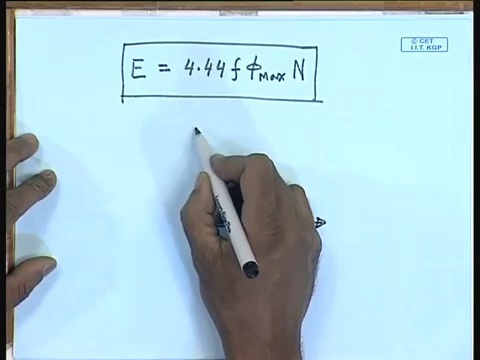 © CET
I.I.T. KGP
E = 4.44 f Φ_Max N